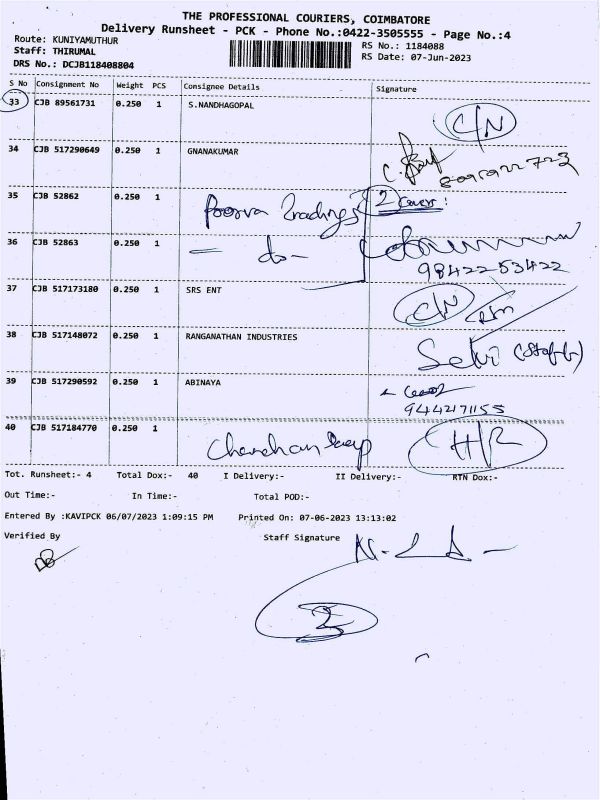 THE PROFESSIONAL COURIERS, COIMBATORE
Delivery Runsheet - PCK - Phone No.:0422-3505555 - Page No.:4
Route: KUNIYAMUTHUR RS No.: 1184088
Staff: THIRUMAL RS Date: 07-Jun-2023
DRS No.: DCJB118408804
S No Consignment No Weight PCS Consignee Details Signature
33 CJB 89561731 0.250 1 S.NANDHAGOPAL C/N
34 CJB 517290649 0.250 1 GNANAKUMAR
35 CJB 52862 0.250 1 Poorva Tradings 2 Cover:
36 CJB 52863 0.250 1 = do -
9842253422
37 CJB 517173180 0.250 1 SRS ENT C/N
38 CJB 517148072 0.250 1 RANGANATHAN INDUSTRIES Selvi (Staff)
39 CJB 517290592 0.250 1 ABINAYA
9442171155
40 CJB 517184770 0.250 1 H/R
Tot. Runsheet:- 4 Total Dox:- 40 I Delivery:- II Delivery:- RTN Dox:-
Out Time:- In Time:- Total POD:-
Entered By :KAVIPCK 06/07/2023 1:09:15 PM Printed On: 07-06-2023 13:13:02
Verified By Staff Signature